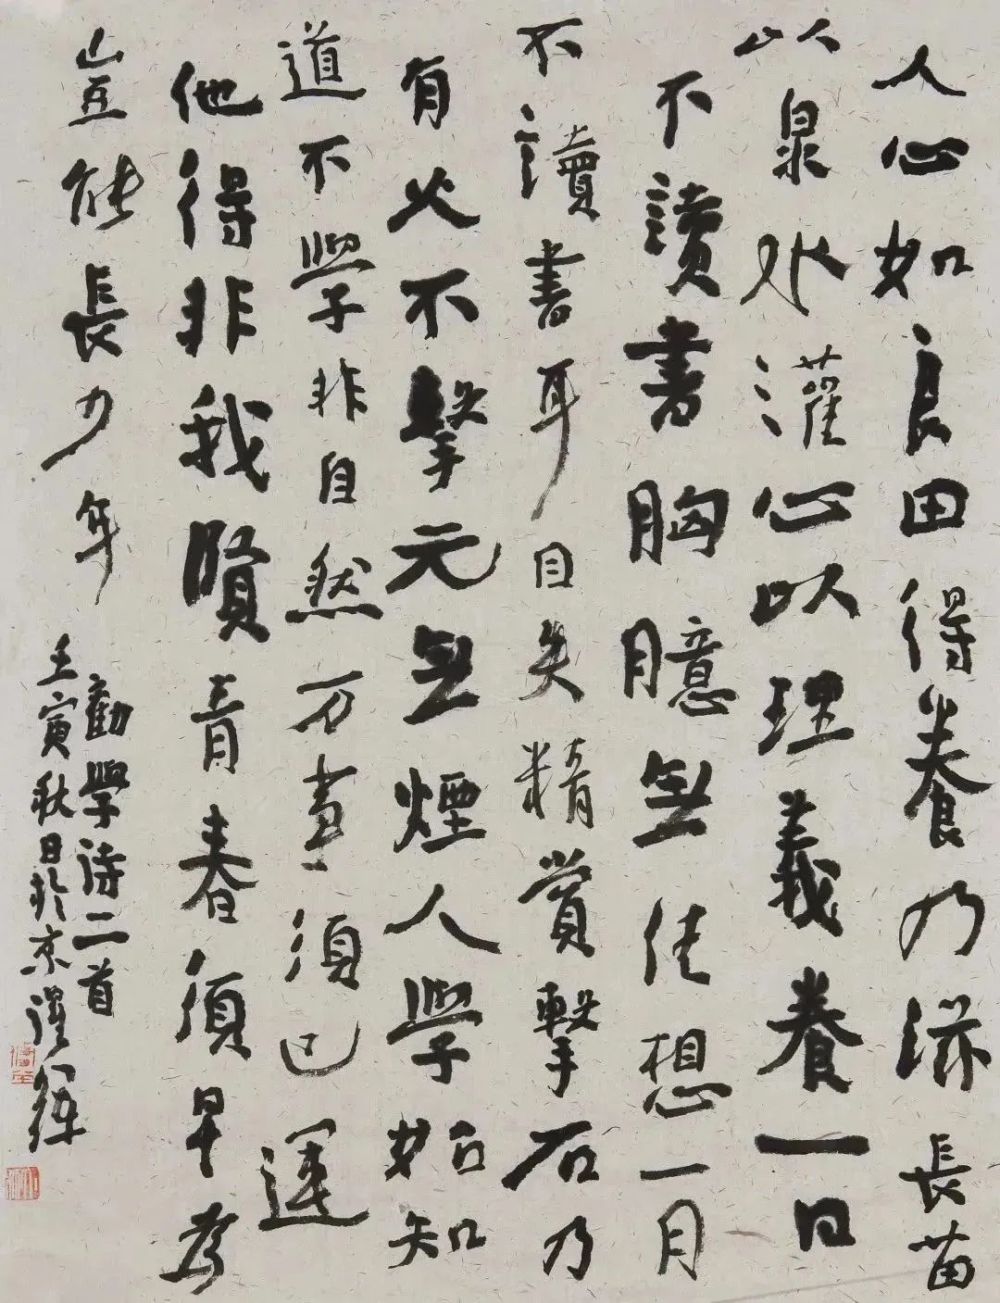 人心如良田得養乃滋長苗
以泉水灌心以理義養一日
不讀書胸臆無佳想一月
不讀書耳目失精賞擊石乃
有火不擊元無煙人學始知
道不學非自然万事須己運
他得非我賢青春須早為
豈能長少年
勸學詩二首
壬寅秋日於京